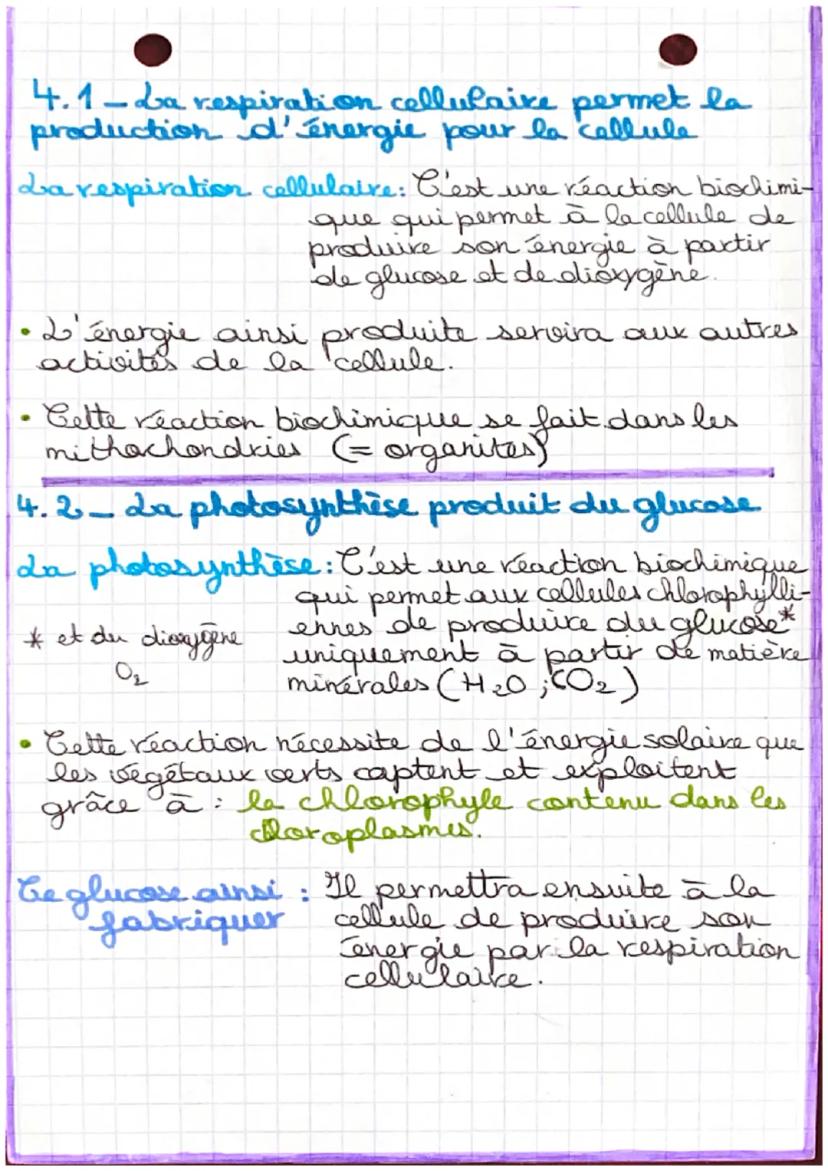 4.1 - La respiration cellulaire permet la
production d'énergie pour la cellule
La respiration cellulaire: C'est une réaction biochimi-
que qui permet à la cellule de
produire son énergie à partir
de glucose et de dioxygène.
• L'énergie ainsi produite servira aux autres
activités de la cellule.
• Cette réaction biochimique se fait dans les
mithochondries (= organites)
4.2 - La photosynthèse produit du glucose
La photosynthèse: C'est une réaction biochimique
qui permet aux cellules chlorophylli-
ennes de produire du glucose*
uniquement à partir de matière
minérales (H2O ; CO2)
* et du dioxygène
O2
• Cette réaction nécessite de l'énergie solaire que
les végétaux verts captent et exploitent
grâce à : la chlorophyle contenu dans les
chloroplasmes.
Ce glucose ainsi : Il permettra ensuite à la
fabriquer cellule de produire son
énergie par la respiration
cellulaire.